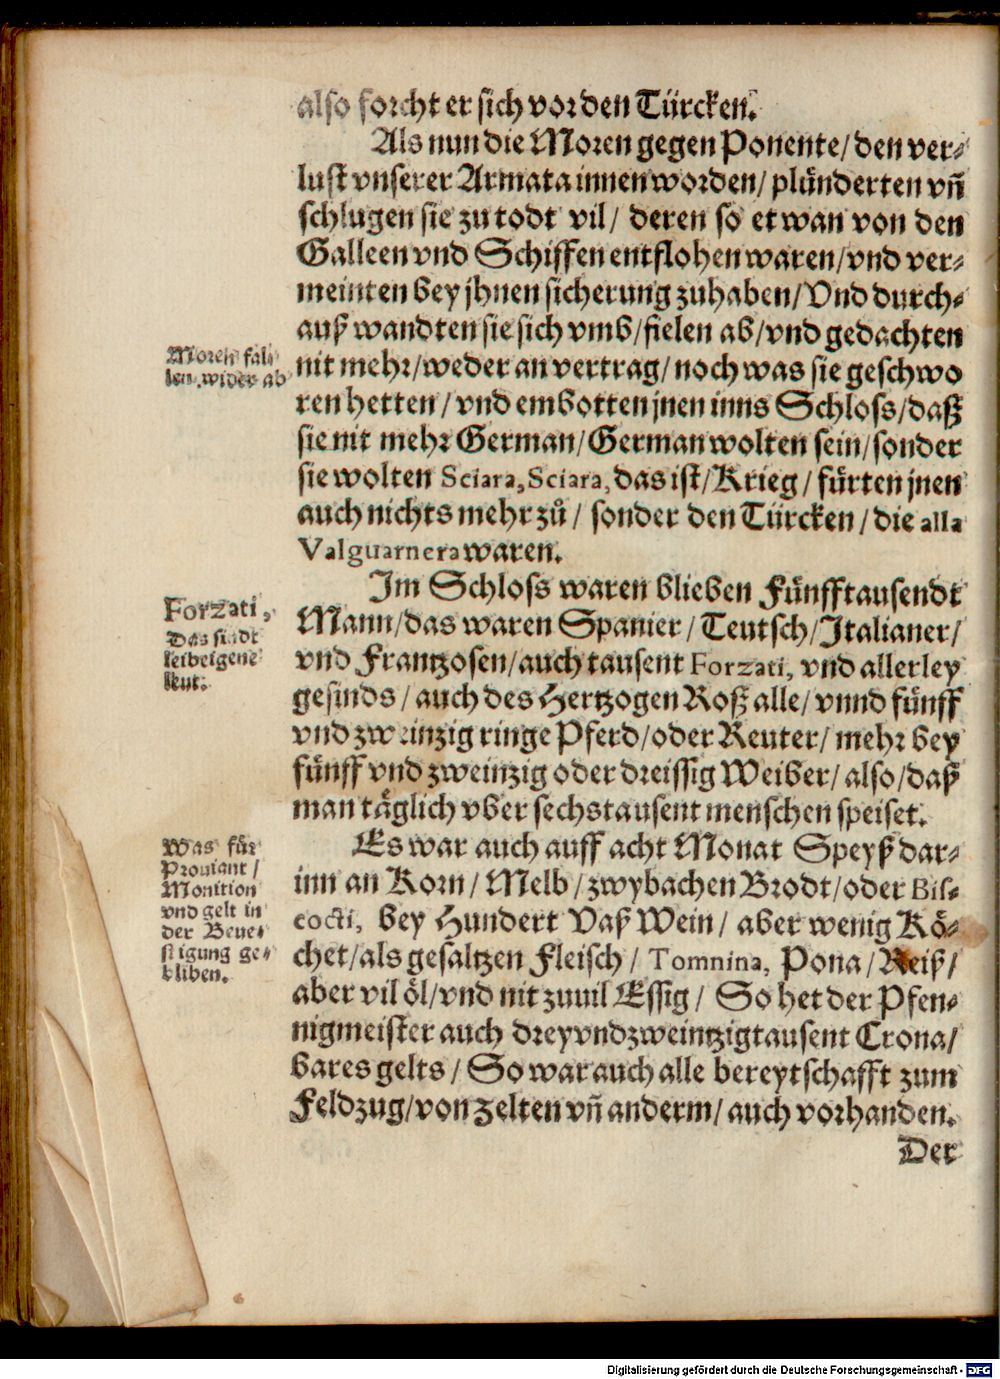 also forcht er sich vor den Türcken.
Als nun die Moren gegen Ponente/ den ver-
lust vnserer Armata innen worden/ plünderten vñ
schlugen sie zu todt vil/ deren so etwan von den
Galleen vnd Schiffen entflohen waren/ vnd ver-
meinten bey jhnen sicherung zuhaben/ Vnd durch-
auß wandten sie sich vmb/ fielen ab/ vnd gedachten
Moren fal-
len wider ab
nit mehr/ weder an vertrag/ noch was sie geschwo
ren hetten/ vnd embotten jnen inns Schloss/ daß
sie nit mehr German/ German wolten sein/ sonder
sie wolten Sciara, Sciara, das ist/ Krieg/ fürten jnen
auch nichts mehr zů/ sonder den Türcken/ die alla
Valguarnera waren.
Im Schloss waren blieben Fünfftausendt
Forzati,
Das sindt
leibeigene
leut.
Mann/ das waren Spanier/ Teutsch/ Italianer/
vnd Frantzosen/ auch tausent Forzati, vnd allerley
gesinds/ auch des Hertzogen Roß alle/ vnnd fünff
vnd zweinzig ringe Pferd/ oder Reuter/ mehr bey
fünff vnd zweinzig oder dreissig Weiber/ also/ daß
man täglich vber sechstausent menschen speiset.
Was für
Prouiant/
Monition
vnd gelt in
der Beue-
stigung ge-
bliben.
Es war auch auff acht Monat Speyß dar-
inn an Korn/ Melb/ zwybachen Brodt/ oder Bis-
cocti, bey Hundert Vaß Wein/ aber wenig Kö-
chet/ als gesaltzen Fleisch/ Tomnina, Pona/ Reiß/
aber vil öl/ vnd nit zuuil Essig/ So het der Pfen-
nigmeister auch dreyvndzweintzigtausent Crona/
bares gelts/ So war auch alle bereytschafft zum
Feldzug/ von Zelten vñ anderm/ auch vorhanden.
Der
Digitalisierung gefördert durch die Deutsche Forschungsgemeinschaft - DFG